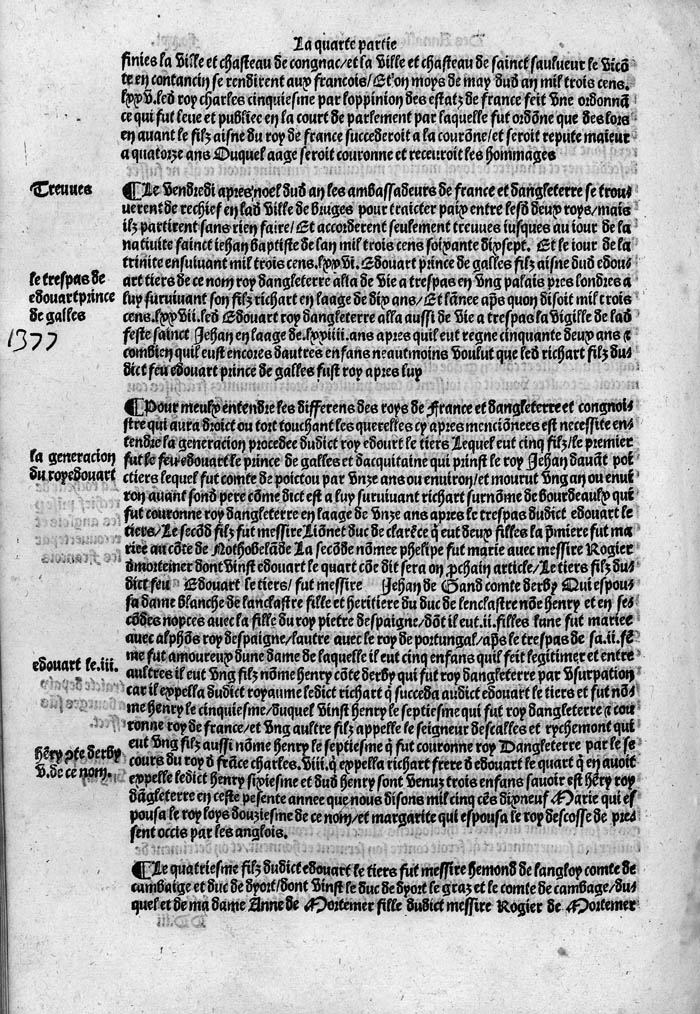 La quarte partie
finies la ville et chasteau de congnac/et la ville et chasteau de sainct saulueur le vicõ
te en contancin se rendirent aux francois/Et on moys de may dud an mil trois cens.
lxxv.led roy charles cinquiesme par loppinion des estatz de france feit vne ordonnã
ce qui fut leue et publiee en la court de parlement par laquelle fut ordõne que des lors
en auant le filz aisne du roy de france succederoit a la courõne/et seroit repute maieur
a quatorze ans Ouquel aage seroit couronne et receuroit les hommages
Treuues
¶Le vendredi apres noel dud an les ambassadeurs de france et dangleterre se trou
uerent de rechief en lad ville de bruges pour traicter paix entre lesd deux roys/mais
ilz partirent sans rien faire/Et accorderent seulement treuues iusques au iour de la
natiuite sainct iehan baptiste de lan mil trois cens soixante dixsept. Et le iour de la
trinite ensuiuant mil trois cens.lxxvi. Edouart prince de galles filz aisne dud edou
art tiers de ce nom roy dangleterre alla de vie a trespas en vng palais pres londres a
le trespas de
edouart prince
de galles
1377
luy suruiuant son filz richart en laage de dix ans/Et lãnee aps quon disoit mil trois
cens.lxxvii.led Edouart roy dangleterre alla aussi de vie a trespas la vigille de lad
feste sainct Jehan en laage de.lxviiii.ans apres quil eut regne cinquante deux ans ⁊
combien quil eust encores dautres enfans neautmoins voulut que led richart filz du
dict feu edouart prince de galles fust roy apres luy
¶Pour meulx entendre les differens des roys de France et dangleterre et congnoi
stre qui aura droict ou tort touchant les querelles cy apres menciõnees est necessite en
tendre la generacion procedee dudict roy edourt le tiers Lequel eut cinq filz/le premier
la generacion
du roy edouart
fut le feu edouart le prince de galles et dacquitaine qui prinst le roy Jehan dauãt poi
ctiers lequel fut comte de poictou par vnze ans ou enuiron/et mourut vng an ou enui
ron auant sond pere cõme dict est a luy suruiuant richart surnõme de bourdeaulx qui
fut couronne roy dangleterre en laage de vnze ans apres le trespas dudict edouart le
tiers/Le secõd filz fut messire Liõnet duc de clarẽce q̃ eut deux filles la pmiere fut ma
riee au cõte de Nothobelãde La secõde nõmee phelipe fut marie auec messire Rogier
dmorteiner dont vinst edouart le quart cõe dit sera on pchain article/Le tiers filz du
dict feu Edouart le tiers/fut messire Jehan de Gand comte derby Qui espou
sa dame blanche de lanclastre fille et heritiere du duc de lenclastre nõe henry et en se
cõdes nopces auec la fille du roy pietre despaigne/dõt il eut.ii.filles lune fut mariee
auec alphõs roy despaigne/lautre auec le roy de portungal/aps le trespas de sa.ii.fẽ
edouart le.iii.
me fut amoureux dune dame de laquelle il eut cinq enfans quil feit legitimer et entre
aultres il eut vng filz nõme henry cõte derby qui fut roy dangleterre par vsurpation
car il expella dudict royaume ledict richart q̃ succeda audict edouart le tiers et fut nõ
me henry le cinquiesme/duquel vinst henry le septiesme qui fut roy dangleterre ⁊ cou
ronne roy de france/et vng aultre filz appelle le seigneur descalles et rychemont qui
hẽry cõte derby
v.de ce nom.
eut vng filz aussi nõme henry le septiesme q̃ fut couronne roy Dangleterre par le se
cours du roy d frãce charles.viii.q̃ expella richart frere d edouart le quart q̃ en auoit
expelle ledict henry sixiesme et dud henry sont venuz trois enfans sauoir est hẽry roy
dãgleterre en ceste pesente annee que nous disons mil cinq cẽs dixneuf Marie qui es
pousa le roy loys douziesme de ce nom/et margarite qui espousa le roy descosse de pre
sent occis par les anglois.
¶Le quatriesme filz dudict edouart le tiers fut messire hemond de langloy comte de
cambaige et duc de dyort/dont vinst le duc de dyort le graz et le comte de cambage/du
quel et de ma dame Anne de Mortemer fille dudict messire Rogier de Mortemer